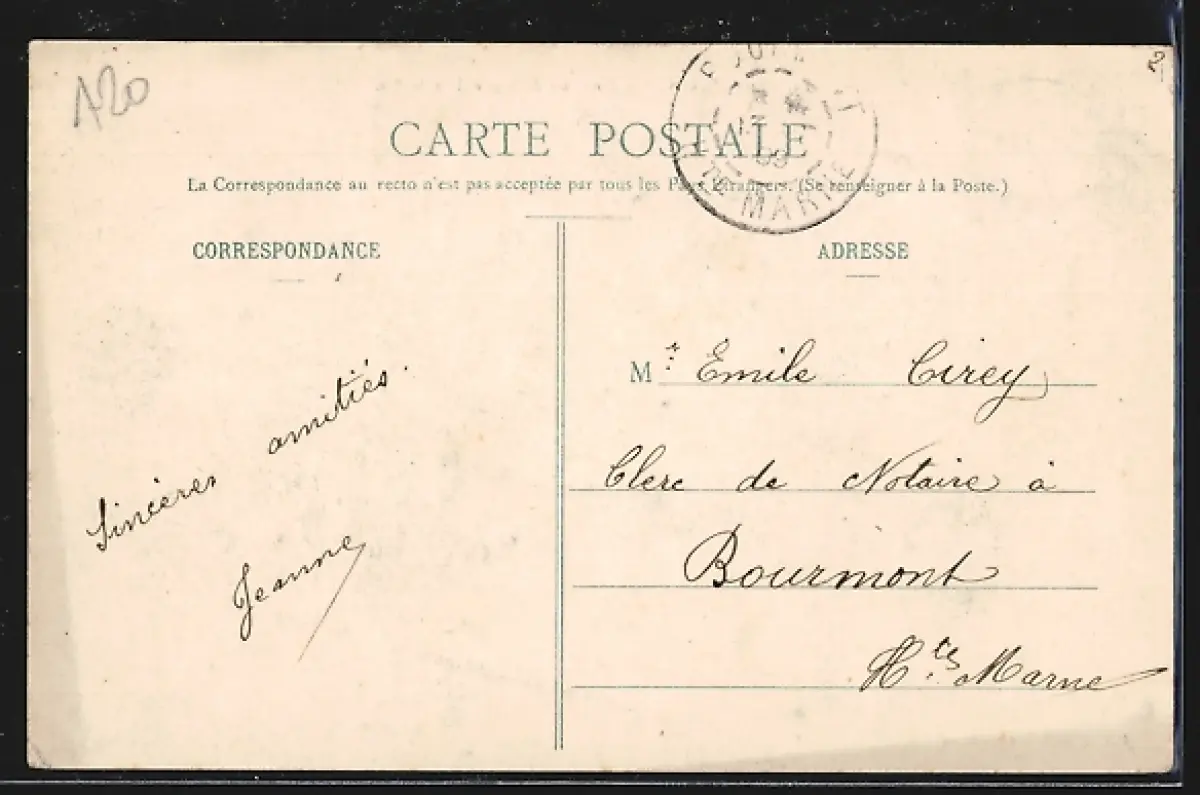 120
2
CARTE POSTALE
La Correspondance au recto n'est pas acceptée par tous les Pays Étrangers. (Se renseigner à la Poste.)
CORRESPONDANCE
Sincères amitiés.
Jeanne
ADRESSE
M r Emile Cirey
Clerc de Notaire à
Bourmont
Hte Marne
MARNE